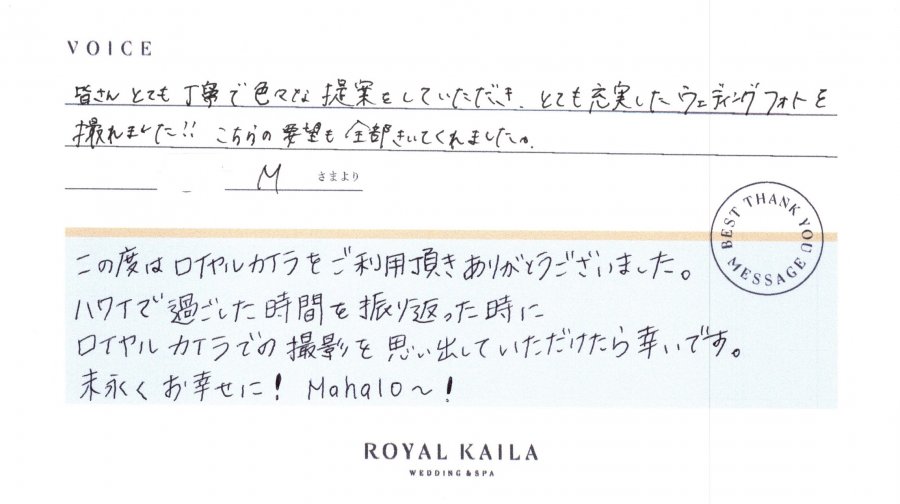 VOICE
皆さんとても丁寧で色々な提案をしていただき、とても充実したウェディングフォトを
撮れました!! こちらの要望も全部きいてくれました。
M さまより
BEST THANK YOU MESSAGE
この度はロイヤルカイラをご利用頂きありがとうございました。
ハワイで過ごした時間を振り返った時に
ロイヤルカイラでの撮影を思い出していただけたら幸いです。
末永くお幸せに! Mahalo〜!
ROYAL KAILA
WEDDING & SPA